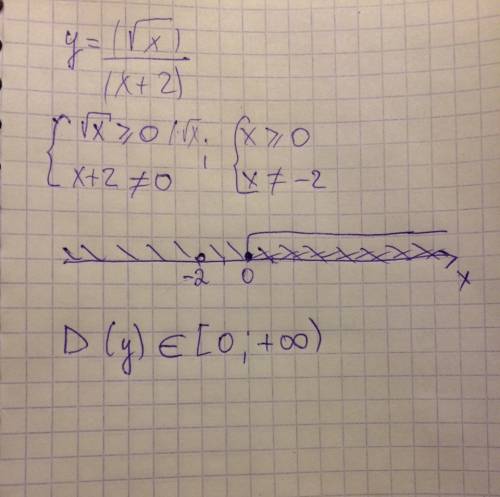 y = (√x)
(x+2)
{ √x ≥ 0 /·√x ; { x ≥ 0
x+2 ≠ 0 x ≠ -2
-2 0 x
D (y) ∈ [0; +∞)